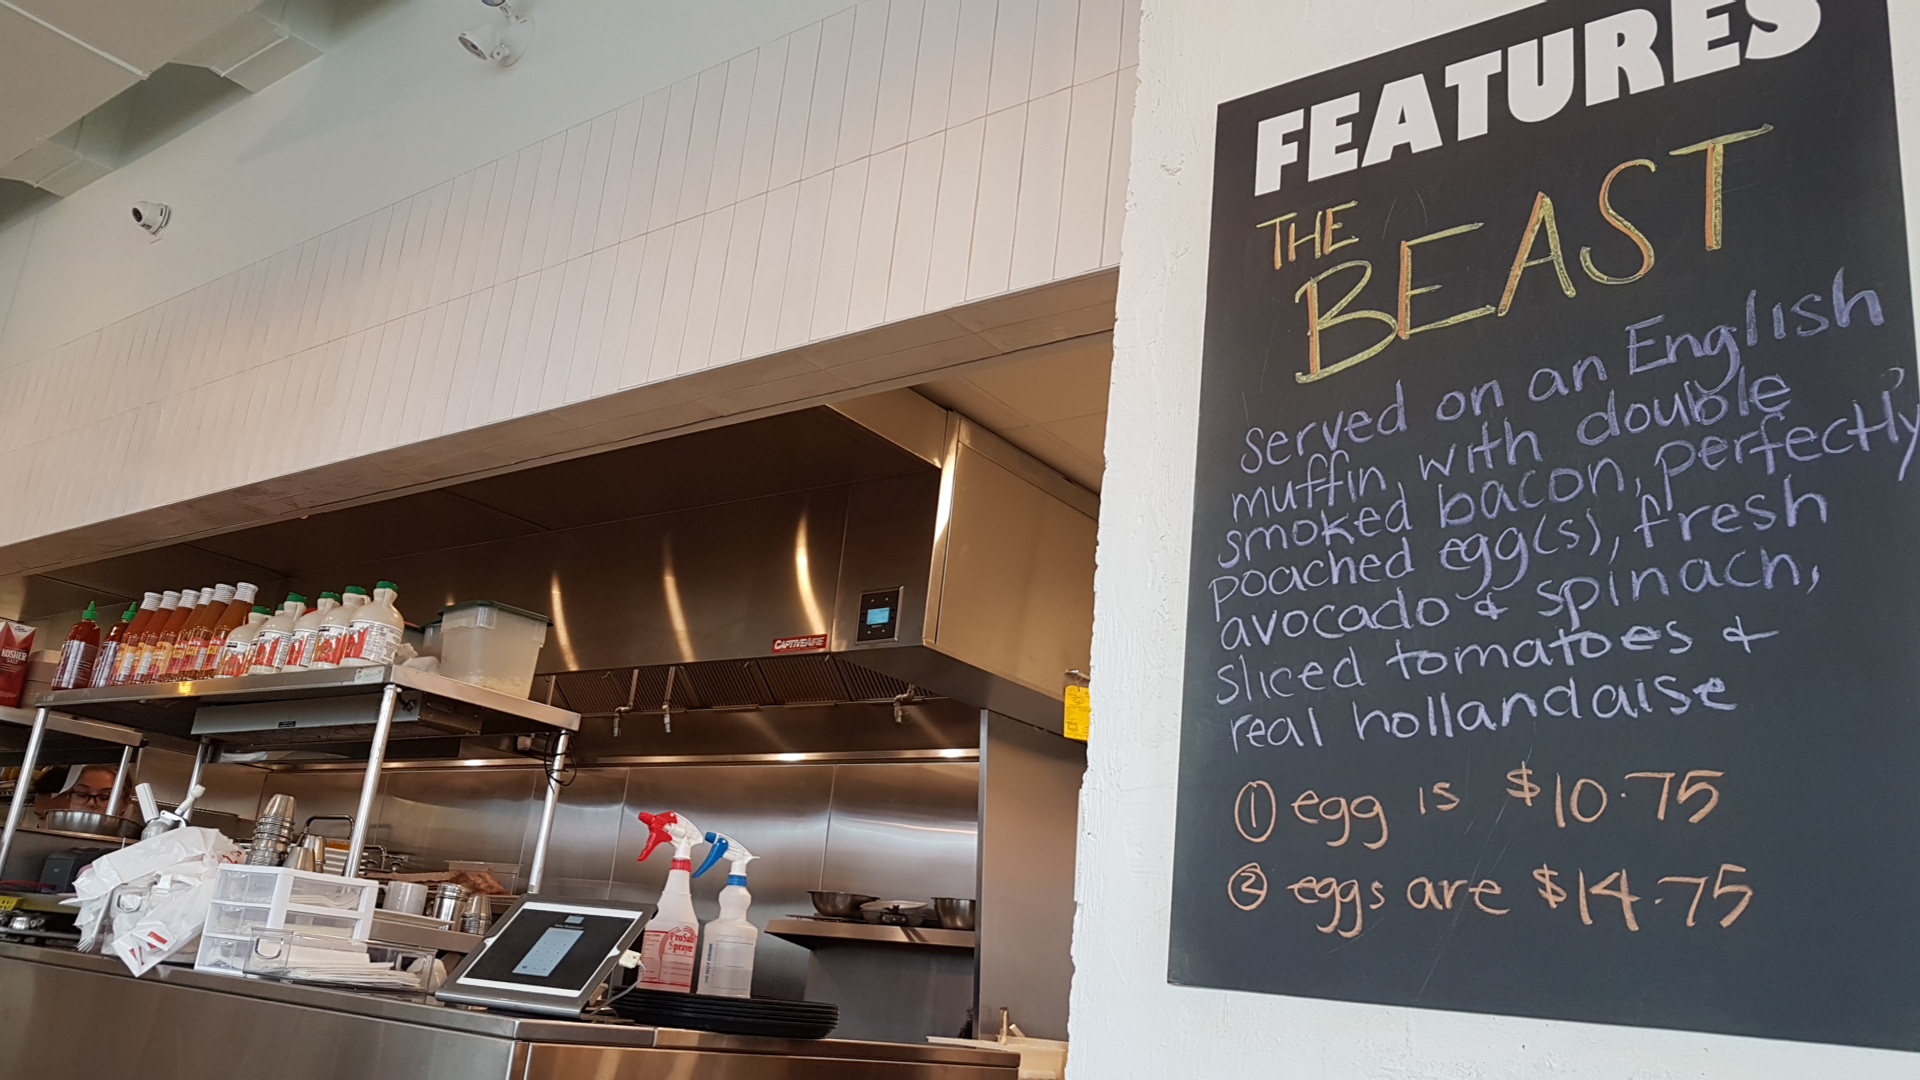 FEATURES
THE
BEAST
served on an English
muffin, with double
smoked bacon, perfectly
poached egg(s), fresh
avocado & spinach,
sliced tomatoes &
real hollandaise
① egg is $10.75
② eggs are $14.75
CAPTIVEAIRE
KOSHER